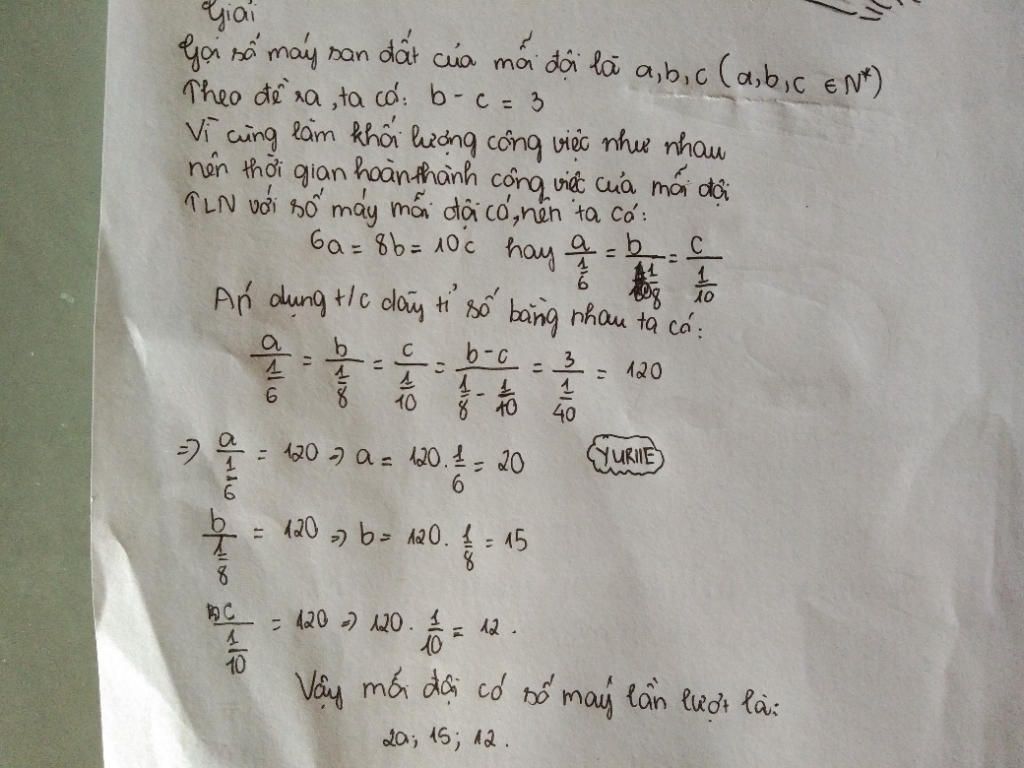 Giải
Gọi số máy san đất của mỗi đội là a,b,c (a,b,c ∈ N*)
Theo đề ra, ta có: b - c = 3
Vì cùng làm khối lượng công việc như nhau
nên thời gian hoàn thành công việc của mỗi đội
TLN với số máy mỗi đội có, nên ta có:
6a = 8b = 10c hay a/(1/6) = b/(1/8) = c/(1/10)
Áp dụng t/c dãy tỉ số bằng nhau ta có:
a/(1/6) = b/(1/8) = c/(1/10) = (b-c)/(1/8 - 1/10) = 3/(1/40) = 120
=> a/(1/6) = 120 => a = 120 . 1/6 = 20
YURIIE
b/(1/8) = 120 => b = 120 . 1/8 = 15
c/(1/10) = 120 => 120 . 1/10 = 12 .
Vậy mỗi đội có số máy lần lượt là:
20; 15; 12 .